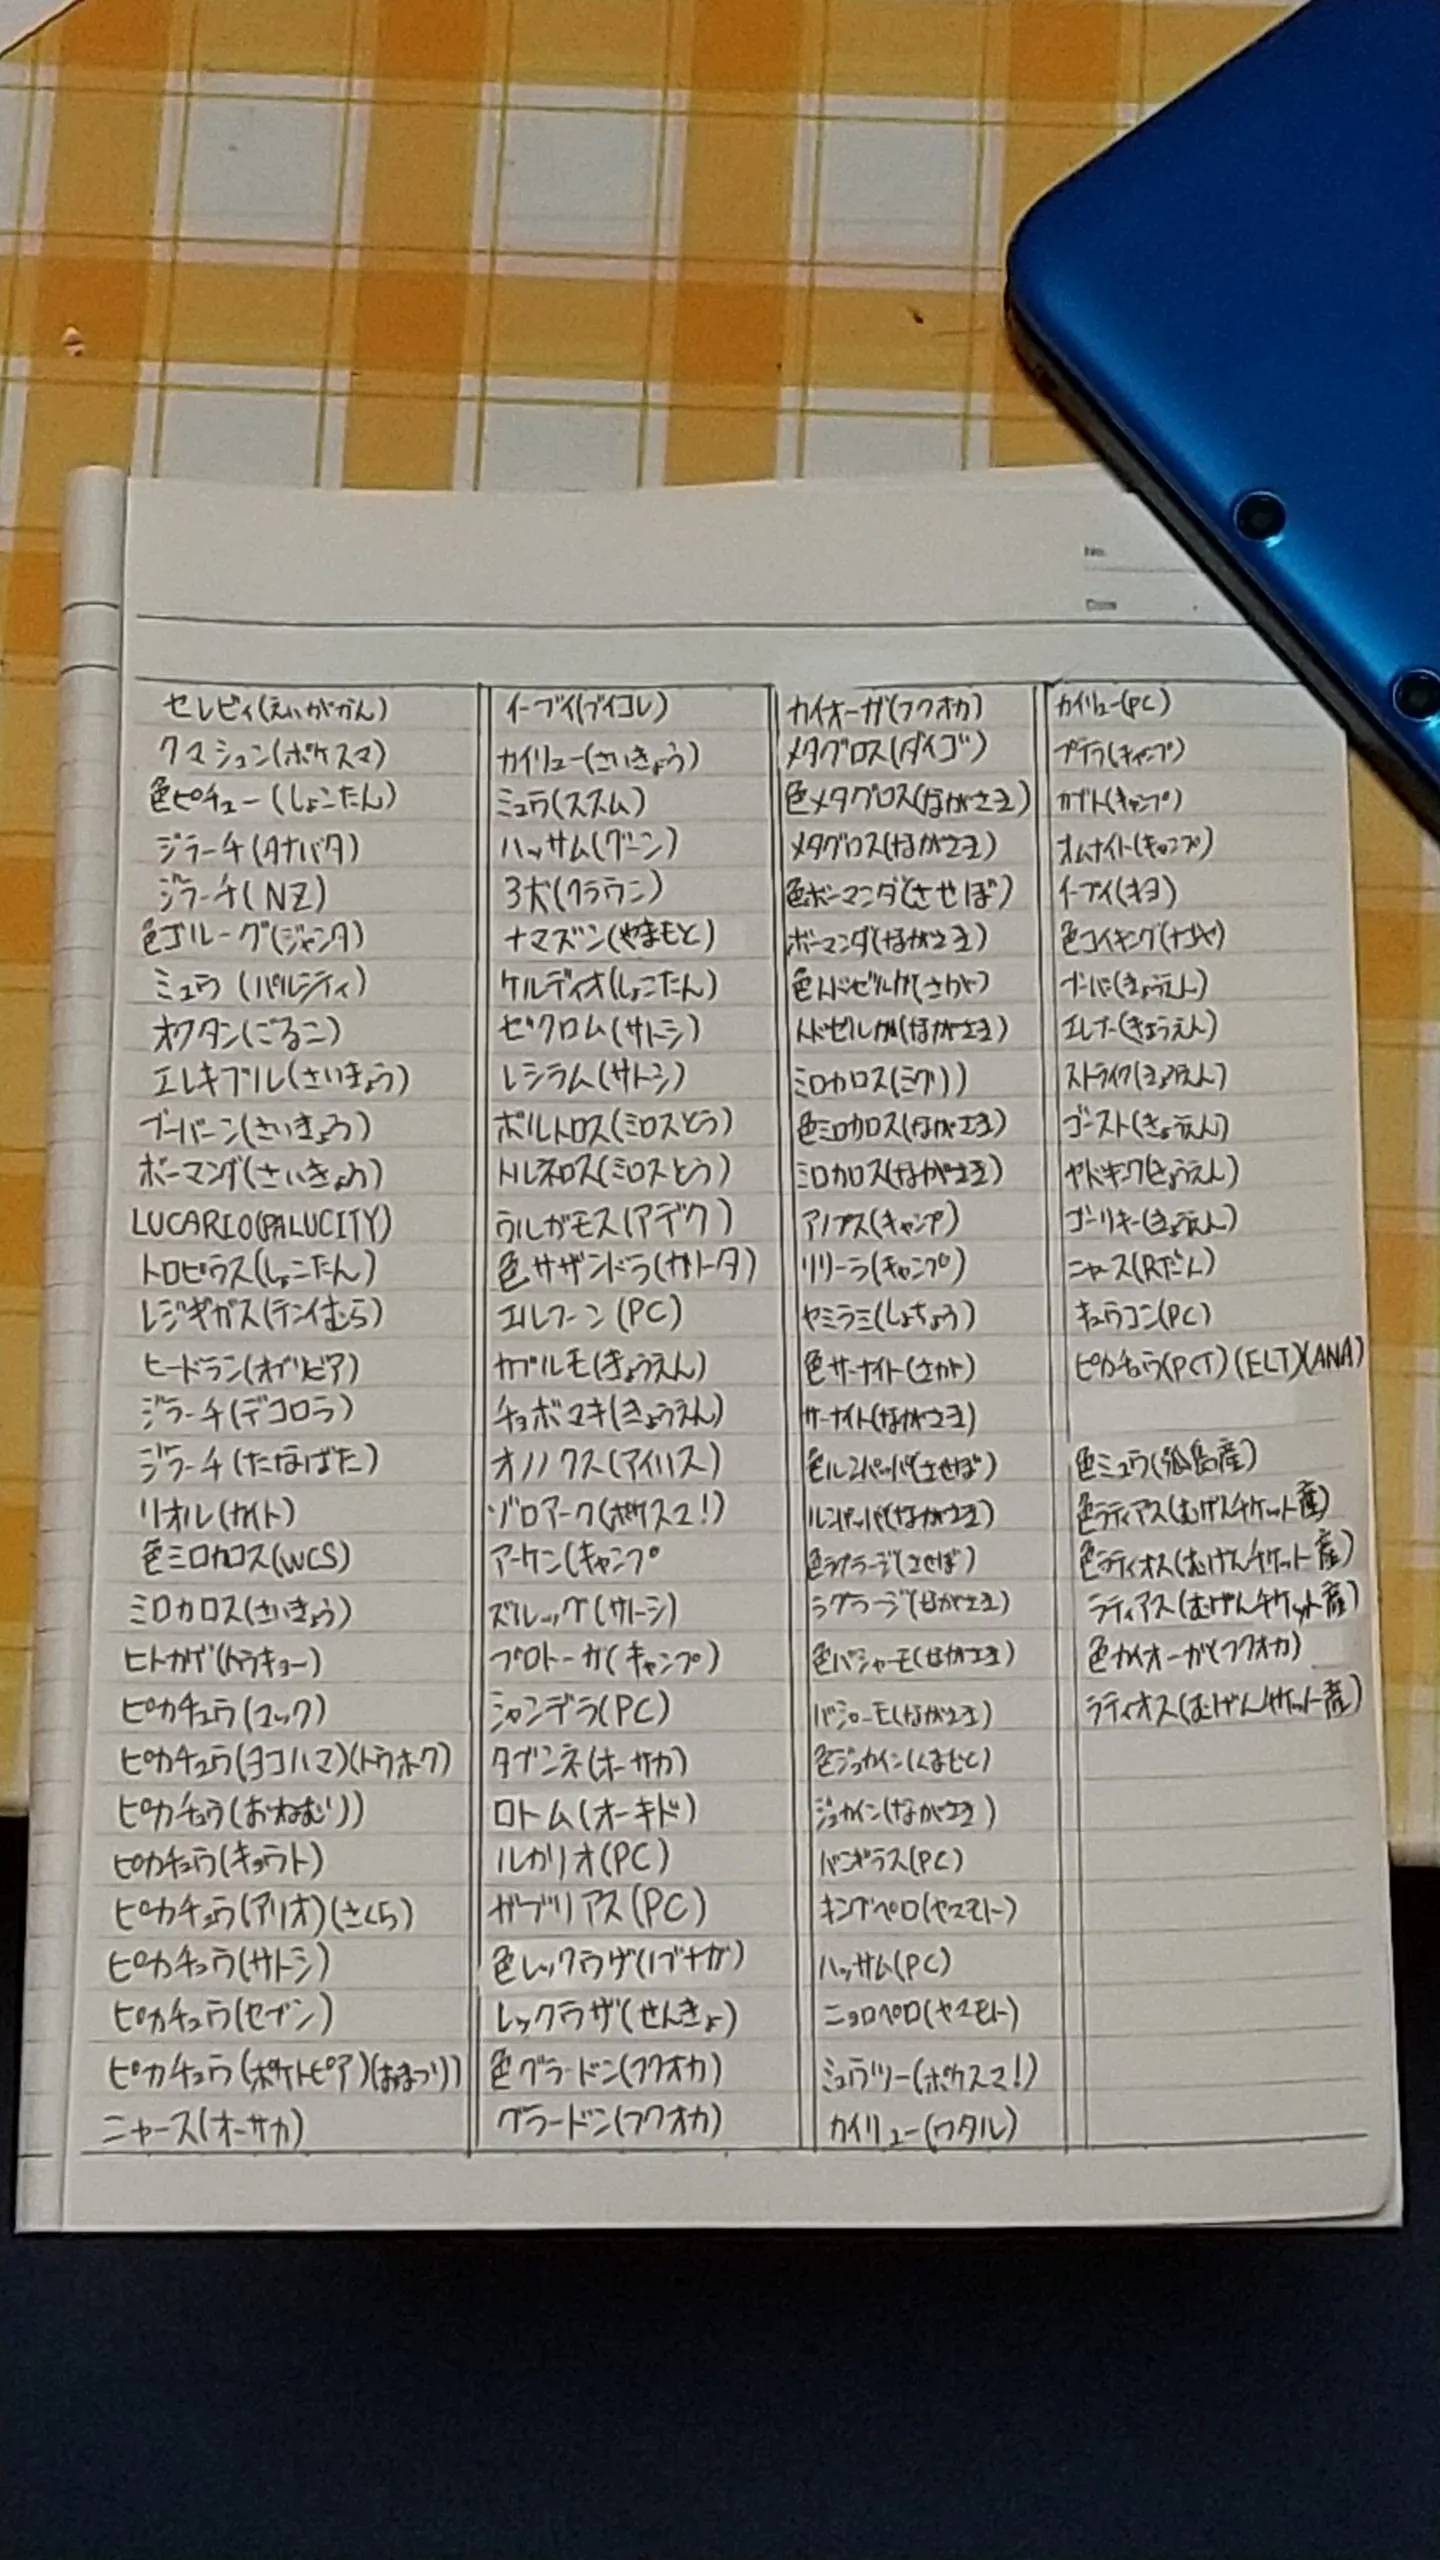 No.
Date
セレビィ(えいがかん)
クマシュン(ポケスマ)
色ピチュー(しょこたん)
ジラーチ(タナバタ)
ジラーチ(NZ)
色ゴルーグ(ジャンタ)
ミュウ(パルシティ)
オクタン(ごるこ)
エレキブル(さいきょう)
ブーバーン(さいきょう)
ボーマンダ(さいきょう)
LUCARIO(PALUCITY)
トロピウス(しょこたん)
レジギガス(テンイむら)
ヒードラン(オブリビア)
ジラーチ(デコロラ)
ジラーチ(たなばた)
リオル(カイト)
色ミロカロス(WCS)
ミロカロス(さいきょう)
ヒトカゲ(トウキョー)
ピカチュウ(マック)
ピカチュウ(ヨコハマ)(トウホク)
ピカチュウ(おねむり)
ピカチュウ(キョウト)
ピカチュウ(アリオ)(さくら)
ピカチュウ(サトシ)
ピカチュウ(セブン)
ピカチュウ(ポケトピア)(おまつり)
ニャース(オーサカ)
イーブイ(ブイコレ)
カイリュー(さいきょう)
ミュウ(ススム)
ハッサム(グーン)
3犬(クラウン)
ナマズン(やまもと)
ケルディオ(しょこたん)
ゼクロム(サトシ)
レシラム(サトシ)
ボルトロス(ミロスとう)
トルネロス(ミロスとう)
ウルガモス(アデク)
色サザンドラ(ガトータ)
エルフーン(PC)
カブルモ(きょうえん)
チョボマキ(きょうえん)
オノノクス(アイリス)
ゾロアーク(ポケスマ!)
アーケン(キャンプ
ズルッグ(サトーシ)
プロトーガ(キャンプ)
シャンデラ(PC)
タブンネ(オーサカ)
ロトム(オーキド)
ルカリオ(PC)
ガブリアス(PC)
色レックウザ(ノブナガ)
レックウザ(せんきょ)
色グラードン(フクオカ)
グラードン(フクオカ)
カイオーガ(フクオカ)
メタグロス(ダイゴ)
色メタグロス(ながさき)
メタグロス(ながさき)
色ボーマンダ(させぼ)
ボーマンダ(ながさき)
色トドゼルガ(さが)
トドゼルガ(ながさき)
ミロカロス(ミクリ)
色ミロカロス(ながさき)
ミロカロス(ながさき)
アノプス(キャンプ)
リリーラ(キャンプ)
ヤミラミ(しょちょう)
色サーナイト(さが)
サーナイト(ながさき)
色ルンパッパ(させぼ)
ルンパッパ(ながさき)
色ラグラージ(させぼ)
ラグラージ(ながさき)
色バシャーモ(ながさき)
バシャーモ(ながさき)
色ジュカイン(くまもと)
ジュカイン(ながさき)
バンギラス(PC)
キングペロ(ヤマモトー)
ハッサム(PC)
ニョロペロ(ヤマモトー)
ミュウツー(ポケスマ!)
カイリュー(ワタル)
カイリュー(PC)
プテラ(キャンプ)
カブト(キャンプ)
オムナイト(キャンプ)
イーブイ(キヨ)
色コイキング(ナゴヤ)
ブーバー(きょうえん)
エレブー(きょうえん)
ストライク(きょうえん)
ゴースト(きょうえん)
ヤドキング(きょうえん)
ゴーリキー(きょうえん)
ニャース(Rだん)
キュウコン(PC)
ピカチュウ(PCT)(ELT)(ANA)
色ミュウ(孤島産)
色ラティアス(むげんチケット産)
色ラティオス(むげんチケット産)
ラティアス(むげんチケット産)
色カイオーガ(フクオカ)
ラティオス(むげんチケット産)